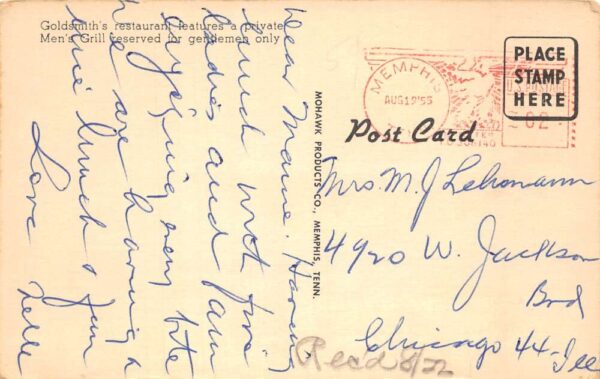 Goldsmith's restaurant features a private
Men's Grill reserved for gentlemen only
Dear Mame. Having
lunch with five
ladies and am
enjoying every bite
we are having a
nice lunch & fun
Love
Nelle
MOHAWK PRODUCTS CO., MEMPHIS, TENN.
MEMPHIS
AUG 19 '55
02
PLACE
STAMP
HERE
Post Card
Mrs. M. J. Lehmann
4920 W. Jackson
Blvd
Chicago 44 - Ill
Recd 8/22